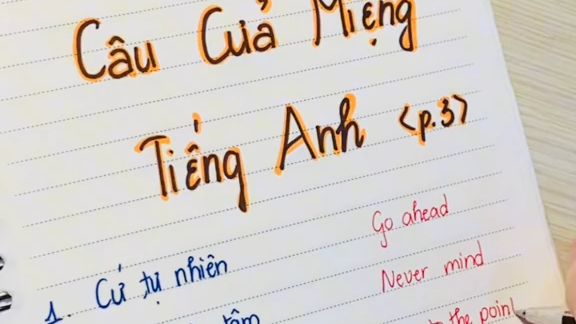 Câu Cửa Miệng
Tiếng Anh <p.3>
1. Cứ tự nhiên Go ahead
tâm Never mind
the point